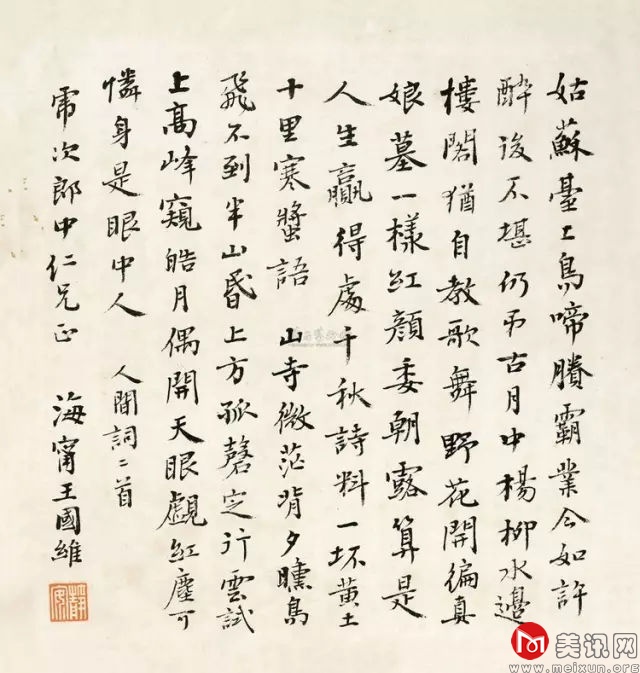 姑蘇臺上烏啼賸霸業今如許
醉後不堪仍弔古月中楊柳水邊
樓閣猶自教歌舞野花開徧真
娘墓一樣紅顏委朝露算是
人生贏得處千秋詩料一坏黃土
十里寒螿語 山寺微茫背夕曛鳥
飛不到半山昏上方孤磬定行雲試
上高峰窺皓月偶開天眼覷紅塵可
憐身是眼中人 人間詞二首
次郎中仁兄正 海甯王國維
靜安
美讯网
www.meixun.org